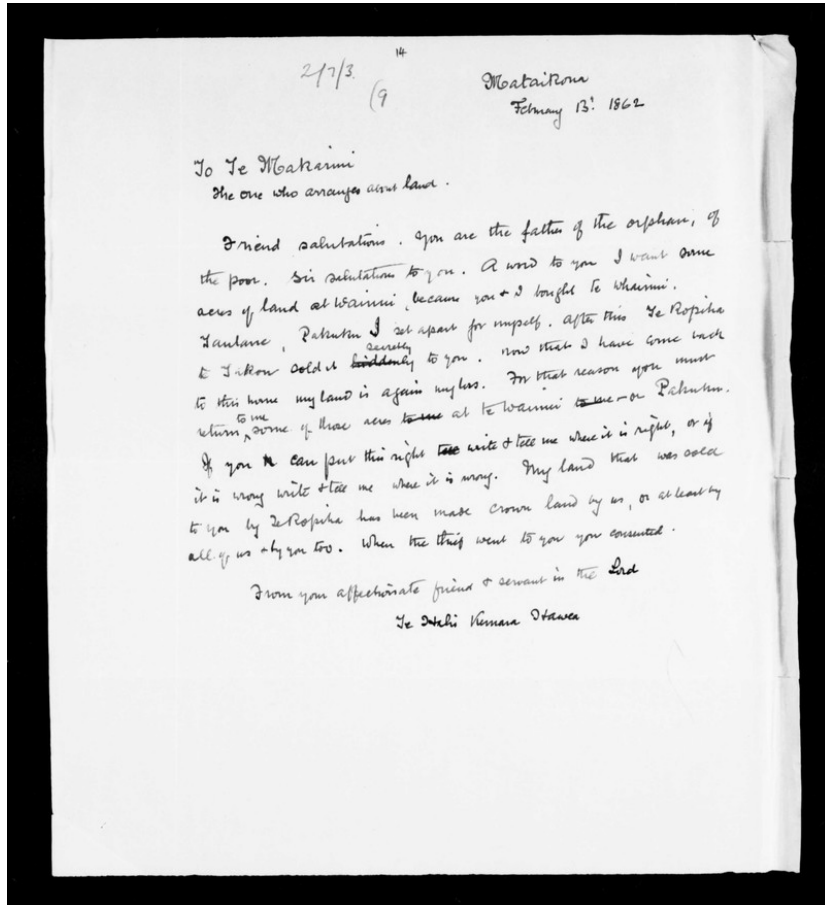 14
2/7/3.
(9
Mataikona
February 13! 1862
To Te Makarini
The one who arranges about land.
Friend salutations. You are the father of the orphan, of
the poor. Sir salutations to you. A word to you I want some
acres of land at Wainui, because you & I bought te whainui.
Pakuku I set apart for myself. After this Te Ropiha
sold it secretly suddenly to you. Now that I have come back
to this home my land is again my loss. For that reason you must
return to me some of those acres to me at te Wainui to me or on Pakuku.
If you can put this right write & tell me where it is right, or if
it is wrong write & tell me where it is wrong. My land that was sold
to you by Te Ropiha has been made crown land by us, or at least by
all of us & by you too. When the thief went to you you consented.
From your affectionate friend & servant in the Lord
Te Kemara Hawea